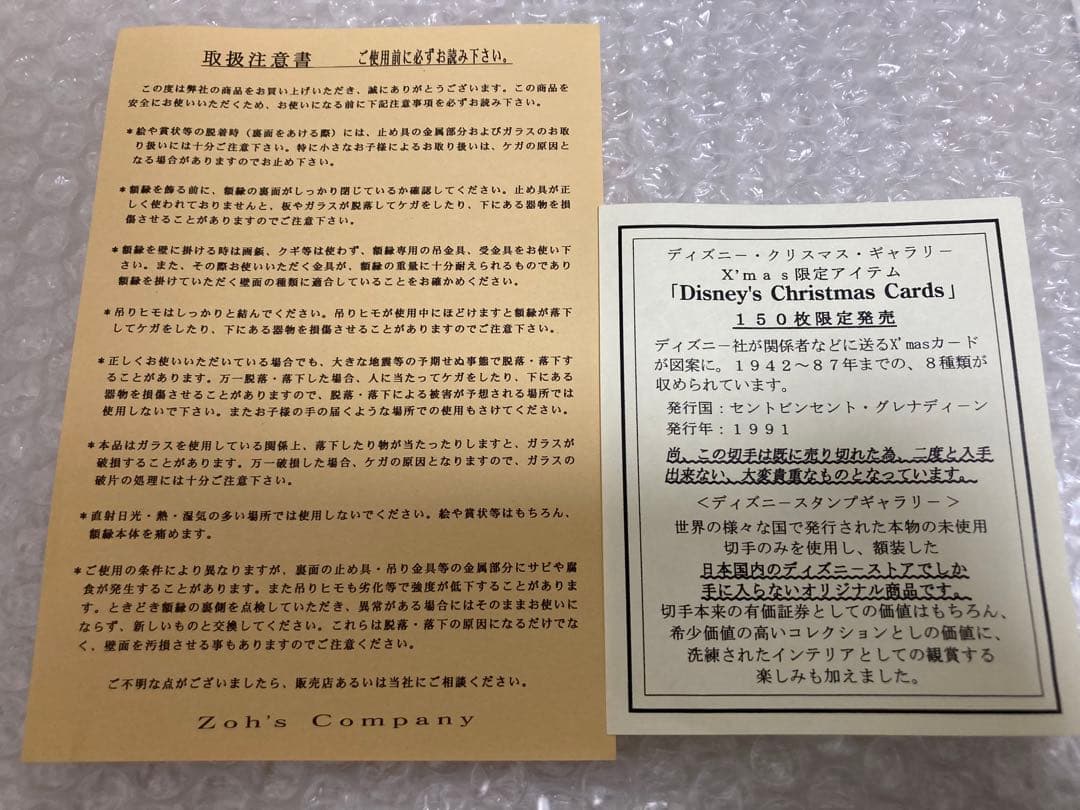 取扱注意書　ご使用前に必ずお読み下さい。
この度は弊社の商品をお買い上げいただき、誠にありがとうございます。この商品を
安全にお使いいただくため、お使いになる前に下記注意事項を必ずお読み下さい。
＊絵や賞状等の脱着時（裏面をあける際）には、止め具の金属部分およびガラスのお取
り扱いには十分ご注意下さい。特に小さなお子様によるお取り扱いは、ケガの原因と
なる場合がありますのでお止め下さい。
＊額縁を飾る前に、額縁の裏面がしっかり閉じているか確認してください。止め具が正
しく使われておりませんと、板やガラスが脱落してケガをしたり、下にある器物を損
傷させることがありますのでご注意下さい。
＊額縁を壁に掛ける時は画鋲、クギ等は使わず、額縁専用の吊金具、受金具をお使い下
さい。また、その際お使いいただく金具が、額縁の重量に十分耐えられるものであり
額縁を掛けていただく壁面の種類に適合していることをお確かめください。
＊吊りヒモはしっかりと結んでください。吊りヒモが使用中にほどけますと額縁が落下
してケガをしたり、下にある器物を損傷させることがありますのでご注意下さい。
＊正しくお使いいただいている場合でも、大きな地震等の予期せぬ事態で脱落・落下す
ることがあります。万一脱落・落下した場合、人に当たってケガをしたり、下にある
器物を損傷させることがありますので、脱落・落下による被害が予想される場所では
使用しないで下さい。またお子様の手の届くような場所での使用もさけてください。
＊本品はガラスを使用している関係上、落下したり物が当たったりしますと、ガラスが
破損することがあります。万一破損した場合、ケガの原因となりますので、ガラスの
破片の処理には十分ご注意下さい。
＊直射日光・熱・湿気の多い場所では使用しないでください。絵や賞状等はもちろん、
額縁本体を痛めます。
＊ご使用の条件により異なりますが、裏面の止め具・吊り金具等の金属部分にサビや腐
食が発生することがあります。また吊りヒモも劣化等で強度が低下することがありま
す。ときどき額縁の裏側を点検していただき、異常がある場合にはそのままお使いに
ならず、新しいものと交換してください。これらは脱落・落下の原因になるだけでな
く、壁面を汚損させる事もありますのでご注意ください。
ご不明な点がございましたら、販売店あるいは当社にご相談ください。
Zoh's Company
ディズニー・クリスマス・ギャラリー
X'mas限定アイテム
「Disney's Christmas Cards」
１５０枚限定発売
ディズニー社が関係者などに送るX'masカード
が図案に。１９４２～８７年までの、８種類が
収められています。
発行国：セントビンセント・グレナディーン
発行年：１９９１
尚、この切手は既に売り切れた為、二度と入手
出来ない、大変貴重なものとなっています。
＜ディズニースタンプギャラリー＞
世界の様々な国で発行された本物の未使用
切手のみを使用し、額装した
日本国内のディズニーストアでしか
手に入らないオリジナル商品です。
切手本来の有価証券としての価値はもちろん、
希少価値の高いコレクションとしの価値に、
洗練されたインテリアとしての観賞する
楽しみも加えました。